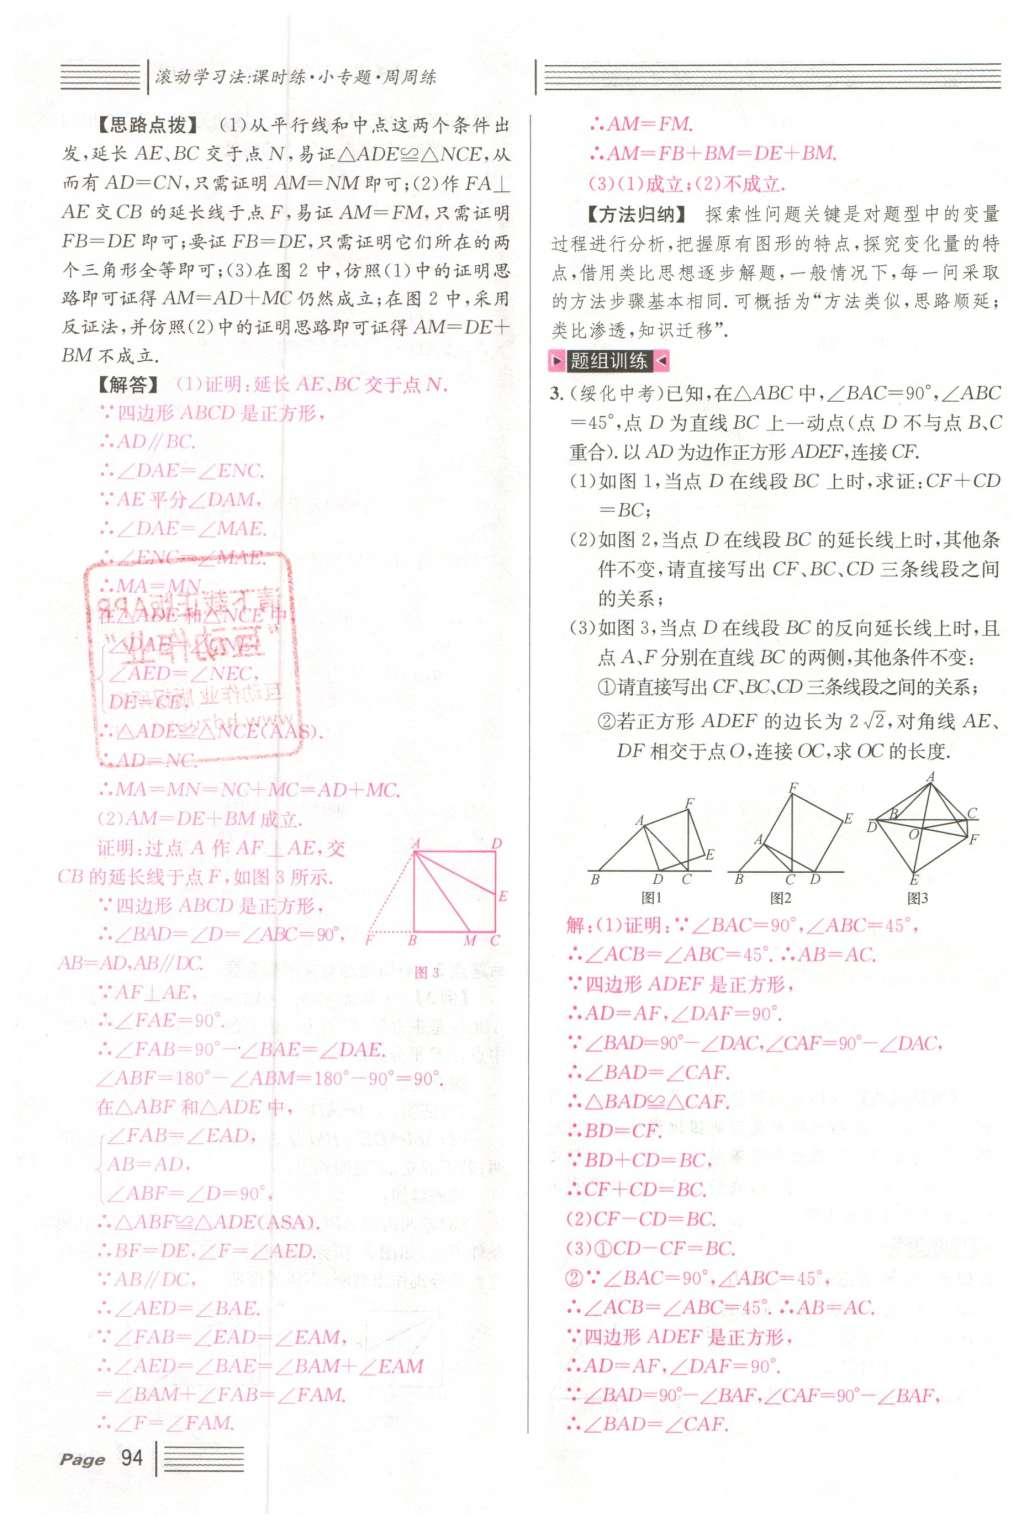 滚动学习法:课时练·小专题·周周练
【思路点拨】 (1)从平行线和中点这两个条件出
发,延长 AE、BC 交于点 N,易证△ADE≌△NCE,从
而有 AD=CN,只需证明 AM=NM 即可;(2)作 FA⊥
AE 交 CB 的延长线于点 F,易证 AM=FM,只需证明
FB=DE 即可;要证 FB=DE,只需证明它们所在的两
个三角形全等即可;(3)在图 2 中,仿照(1)中的证明思
路即可证得 AM=AD+MC 仍然成立;在图 2 中,采用
反证法,并仿照(2)中的证明思路即可证得 AM=DE+
BM 不成立.
【解答】 (1)证明:延长 AE、BC 交于点 N.
∵四边形 ABCD 是正方形,
∴AD∥BC.
∴∠DAE=∠ENC.
∵AE 平分∠DAM,
∴∠DAE=∠MAE.
∴∠ENC=∠MAE.
∴MA=MN.
在△ADE 和△NCE 中,
∠DAE=∠CNE,
∠AED=∠NEC,
DE=CE,
∴△ADE≌△NCE(AAS).
∴AD=NC.
∴MA=MN=NC+MC=AD+MC.
(2)AM=DE+BM 成立.
证明:过点 A 作 AF⊥AE,交
CB 的延长线于点 F,如图 3 所示.
∵四边形 ABCD 是正方形,
∴∠BAD=∠D=∠ABC=90°,
AB=AD,AB∥DC.
∵AF⊥AE,
∴∠FAE=90°.
∴∠FAB=90°-∠BAE=∠DAE.
∠ABF=180°-∠ABM=180°-90°=90°.
在△ABF 和△ADE 中,
∠FAB=∠EAD,
AB=AD,
∠ABF=∠D=90°,
∴△ABF≌△ADE(ASA).
∴BF=DE,∠F=∠AED.
∵AB∥DC,
∴∠AED=∠BAE.
∵∠FAB=∠EAD=∠EAM,
∴∠AED=∠BAE=∠BAM+∠EAM
=∠BAM+∠FAB=∠FAM.
∴∠F=∠FAM.
A D
E
F B M C
图 3
∴AM=FM.
∴AM=FB+BM=DE+BM.
(3)(1)成立;(2)不成立.
【方法归纳】 探索性问题关键是对题型中的变量
过程进行分析,把握原有图形的特点,探究变化量的特
点,借用类比思想逐步解题,一般情况下,每一问采取
的方法步骤基本相同.可概括为“方法类似,思路顺延;
类比渗透,知识迁移”.
题组训练
3.(绥化中考)已知,在△ABC 中,∠BAC=90°,∠ABC
=45°,点 D 为直线 BC 上一动点(点 D 不与点 B、C
重合).以 AD 为边作正方形 ADEF,连接 CF.
(1)如图 1,当点 D 在线段 BC 上时,求证:CF+CD
=BC;
(2)如图 2,当点 D 在线段 BC 的延长线上时,其他条
件不变,请直接写出 CF、BC、CD 三条线段之间
的关系;
(3)如图 3,当点 D 在线段 BC 的反向延长线上时,且
点 A、F 分别在直线 BC 的两侧,其他条件不变:
①请直接写出 CF、BC、CD 三条线段之间的关系;
②若正方形 ADEF 的边长为 2√2,对角线 AE、
DF 相交于点 O,连接 OC,求 OC 的长度.
A F E B D C
图1
F A E B C D
图2
A B C D O F E
图3
解:(1)证明:∵∠BAC=90°,∠ABC=45°,
∴∠ACB=∠ABC=45°.∴AB=AC.
∵四边形 ADEF 是正方形,
∴AD=AF,∠DAF=90°.
∵∠BAD=90°-∠DAC,∠CAF=90°-∠DAC,
∴∠BAD=∠CAF.
∴△BAD≌△CAF.
∴BD=CF.
∵BD+CD=BC,
∴CF+CD=BC.
(2)CF-CD=BC.
(3)①CD-CF=BC.
②∵∠BAC=90°,∠ABC=45°,
∴∠ACB=∠ABC=45°.∴AB=AC.
∵四边形 ADEF 是正方形,
∴AD=AF,∠DAF=90°.
∵∠BAD=90°-∠BAF,∠CAF=90°-∠BAF,
∴∠BAD=∠CAF.
Page 94